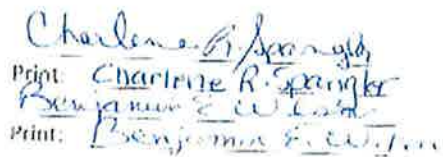 Charlene R. Spangler
Print: Charlene R. Spangler
Benjamin E Wilson
Print: Benjamin E. Wilson